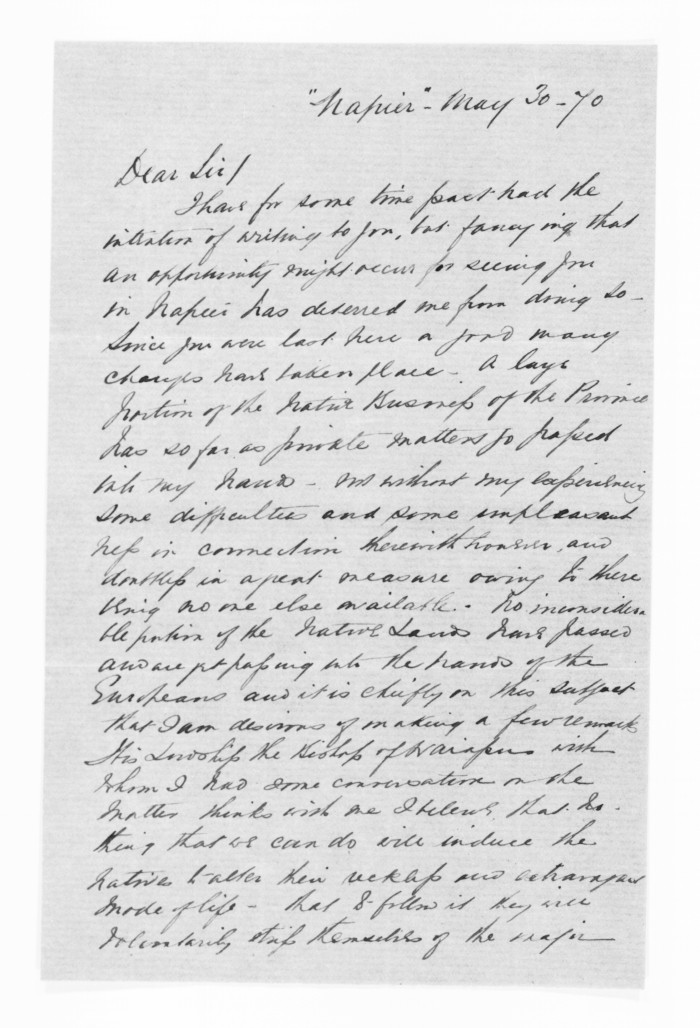 "Napier" - May 30 - 70
Dear Sir/
I have for some time past had the
intention of writing to you, but fancying that
an opportunity might occur for seeing you
in Napier has deterred me from doing so -
Since you were last here a good many
changes have taken place - A large
portion of the Native Business of the Province
has so far as private matters go passed
into my hands - not without my experiencing
some difficulties and some unpleasant
ness in connection therewith however, and
doubtless in a great measure owing to there
being no one else available. No inconsidera
ble portion of the Native Lands have passed
and are yet passing into the hands of the
Europeans and it is chiefly on this subject
that I am desirous of making a few remarks
His Lordship the Bishop of Waiapu with
whom I had some conversation on the
matter thinks with me I believe, that no-
thing that we can do will induce the
Natives to alter their reckless and extravagant
mode of life - that to follow it they will
voluntarily strip themselves of the major